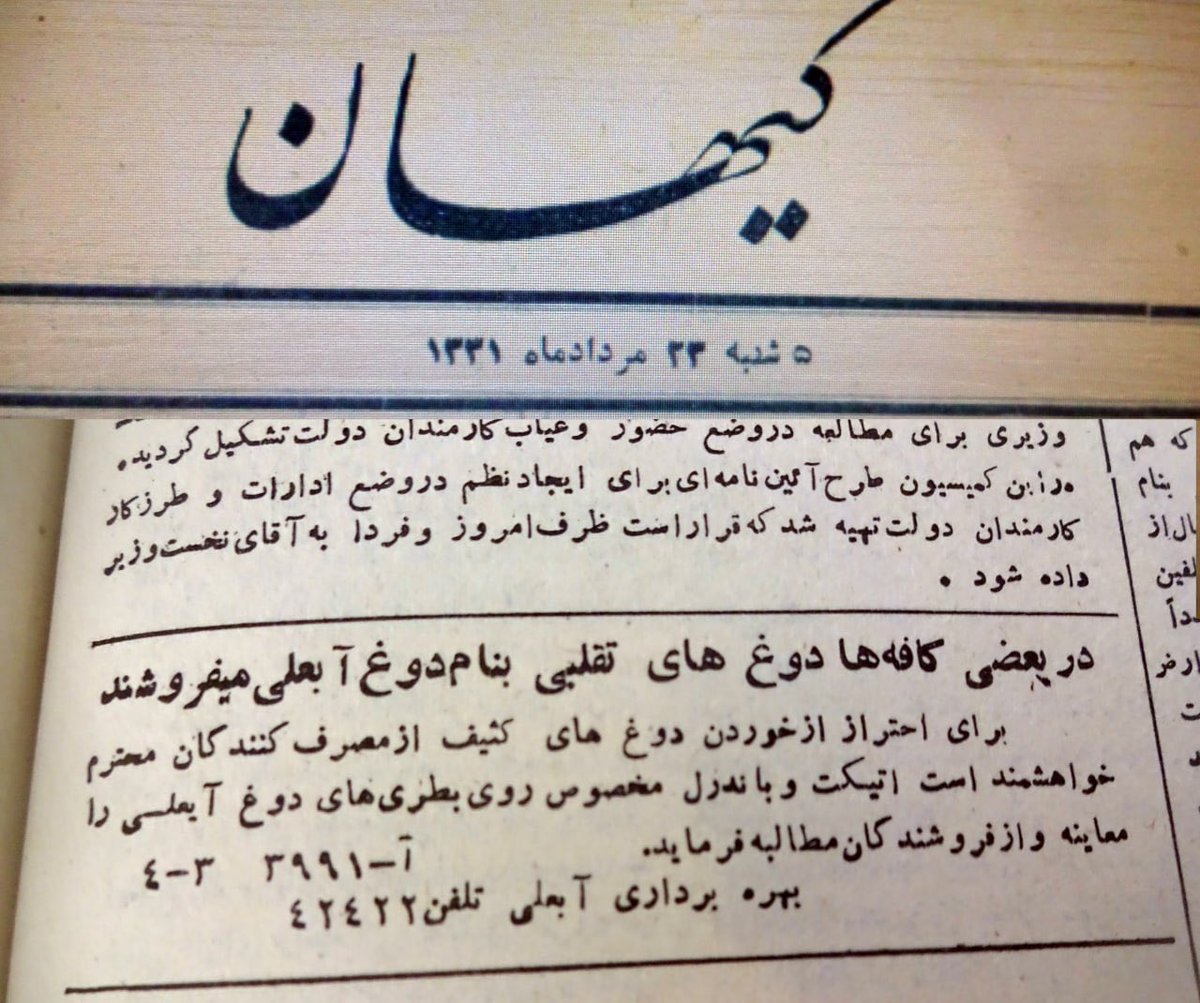 کیهان
۵ شنبه ۲۳ مردادماه ۱۳۳۱
وزیری برای مطالعه دروضع حضور وغیاب کارمندان دولت تشکیل گردید.
دراین کمیسیون طرح آئین نامه‌ای برای ایجاد نظم دروضع ادارات و طرز کار
کارمندان دولت تهیه شد که قرار است ظرف امروز وفردا به آقای نخست وزیر
داده شود .
در بعضی کافه‌ها دوغ های تقلبی بنام دوغ آبعلی میفروشند
برای احتراز از خوردن دوغ های کثیف از مصرف کنندگان محترم
خواهشمند است اتیکت و باندرل مخصوص روی بطری‌های دوغ آبعلی را
معاینه و از فروشندگان مطالبه فرماید.
آ-۳۹۹۱ ۳-۴
بهره برداری آبعلی تلفن ۴۲۴۲۲
که هم
بنام